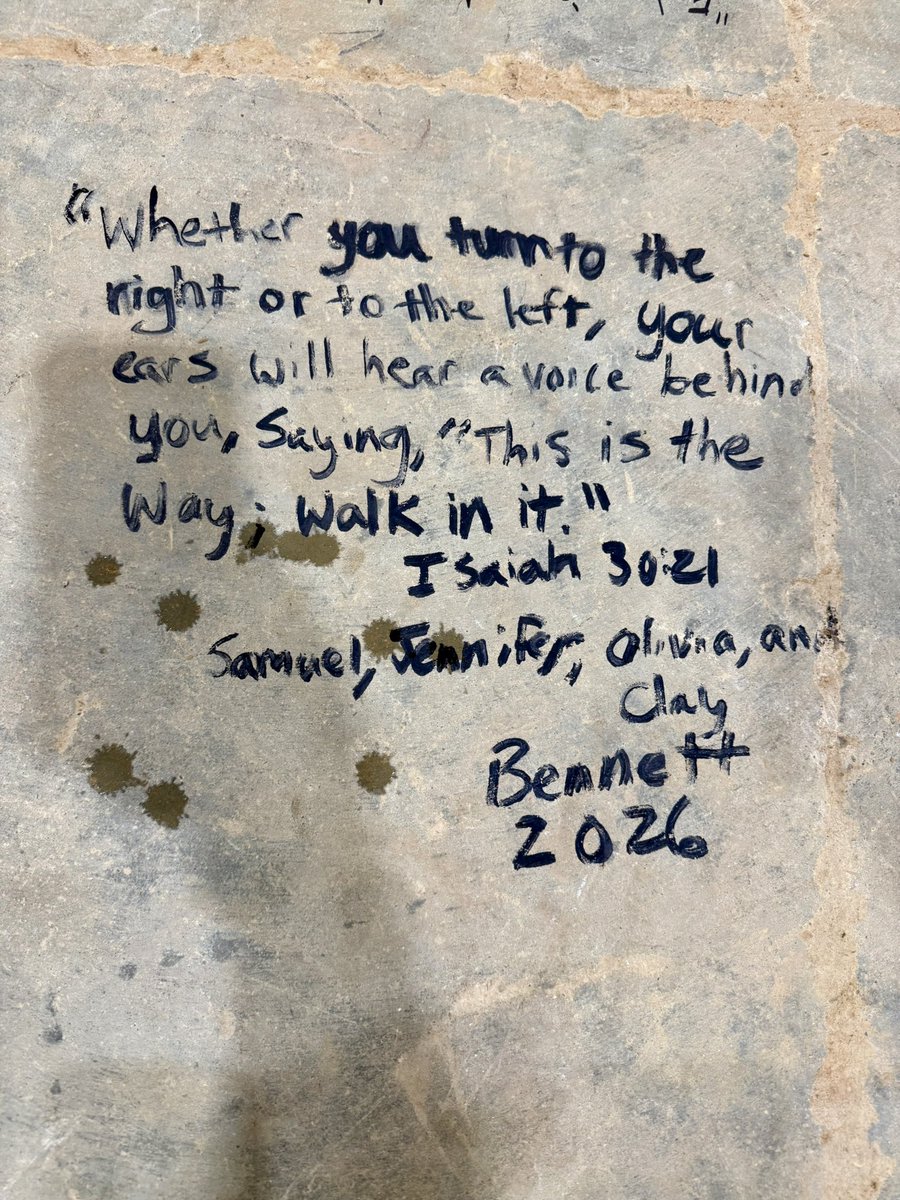 "Whether you turn to the
right or to the left, your
ears will hear a voice behind
you, Saying, "This is the
Way; Walk in it."
Isaiah 30:21
Samuel, Jennifer, Olivia, and
Clay
Bennett
2026